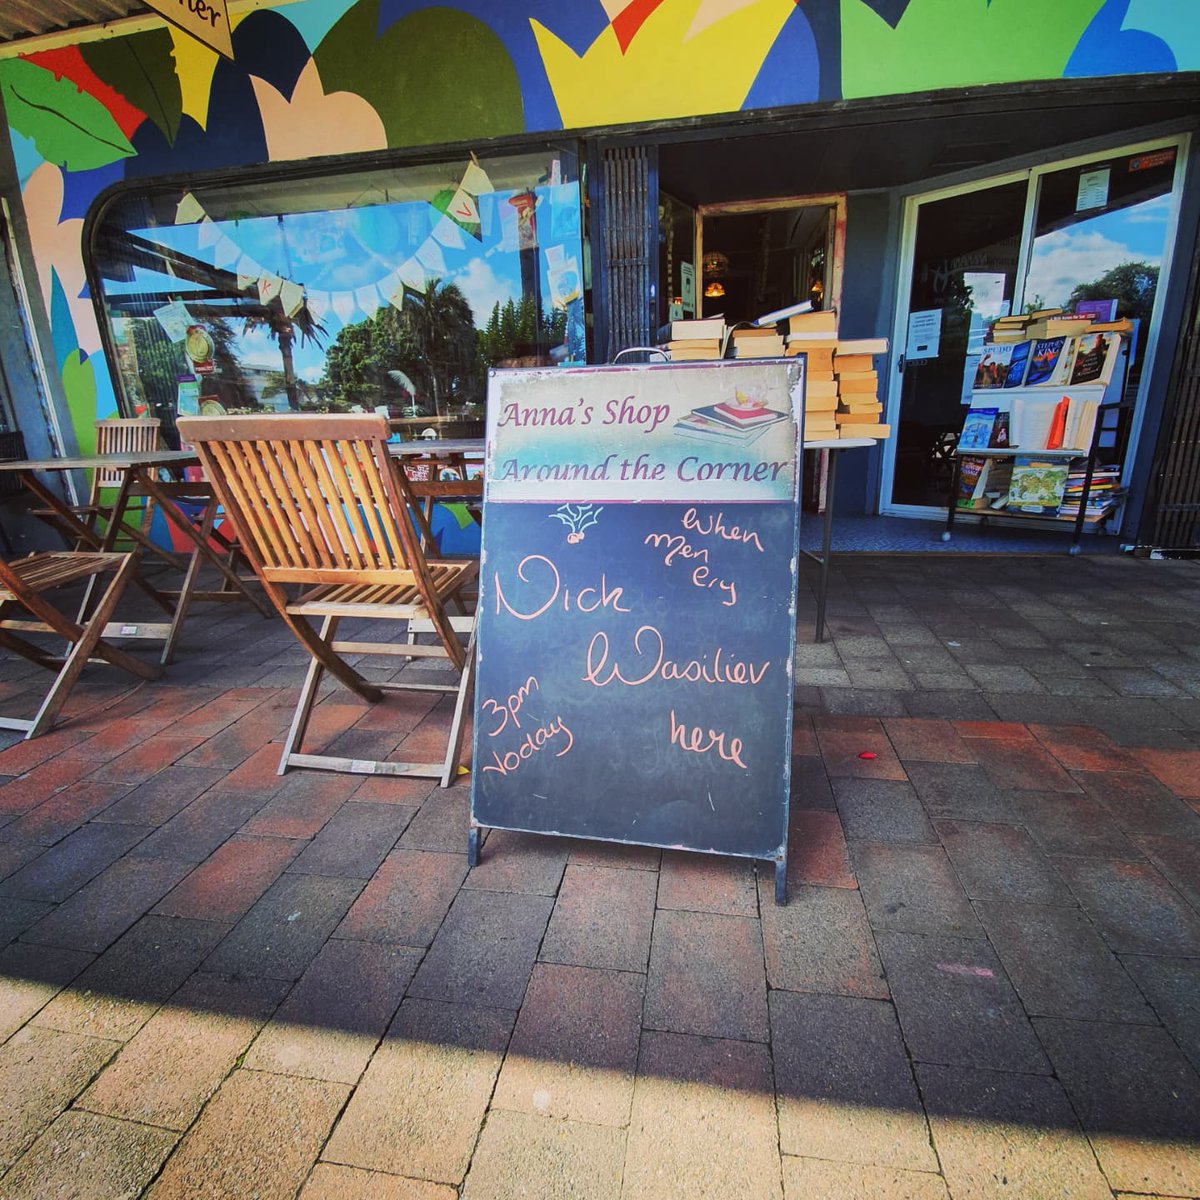 ner
V
K
Anna's Shop
Around the Corner
When
Men
Cry
Nick
Wasiliev
3pm
Today
here
SPUD
STEPHEN
KING